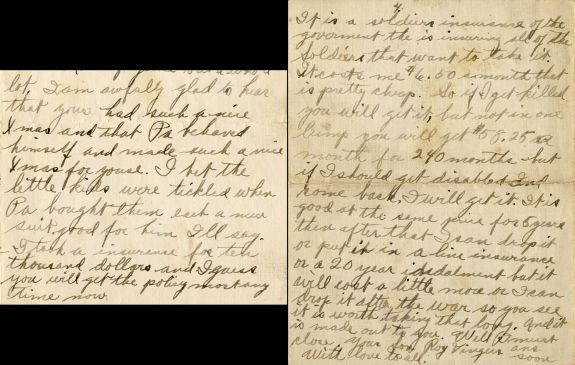 lot. I am awfully glad to hear
that your had such a nice
Xmas and that Pa behaved
himself and made such a nice
Xmas for youse. I bet the
little kids were tickled when
Pa bought them each a new
suit, good for him I'll say.
I took a insurance for ten
thousand dollars and I guess
you will get the policy most any
time now.
4.
It is a soldiers insurance of the
goverment the is insuring all of the
Soldiers that want to take it.
It costs me $6.50 a month that
is pretty cheap. So if I get killed
you will get it, but not in one
lump you will get $58.25 a
month for 240 months but
if I should get disabled and
come back, I will get it. It is
good at the same price for 5 years
then after that I can drop it
or put it in a line insurance
or a 20 year indalment but it
will cost a little more or I can
drop it after the war so you see
it is worth taking that long. And it
is made out to you. Well I must
close. Your Son Roy Vingers ans
With love to all. soon